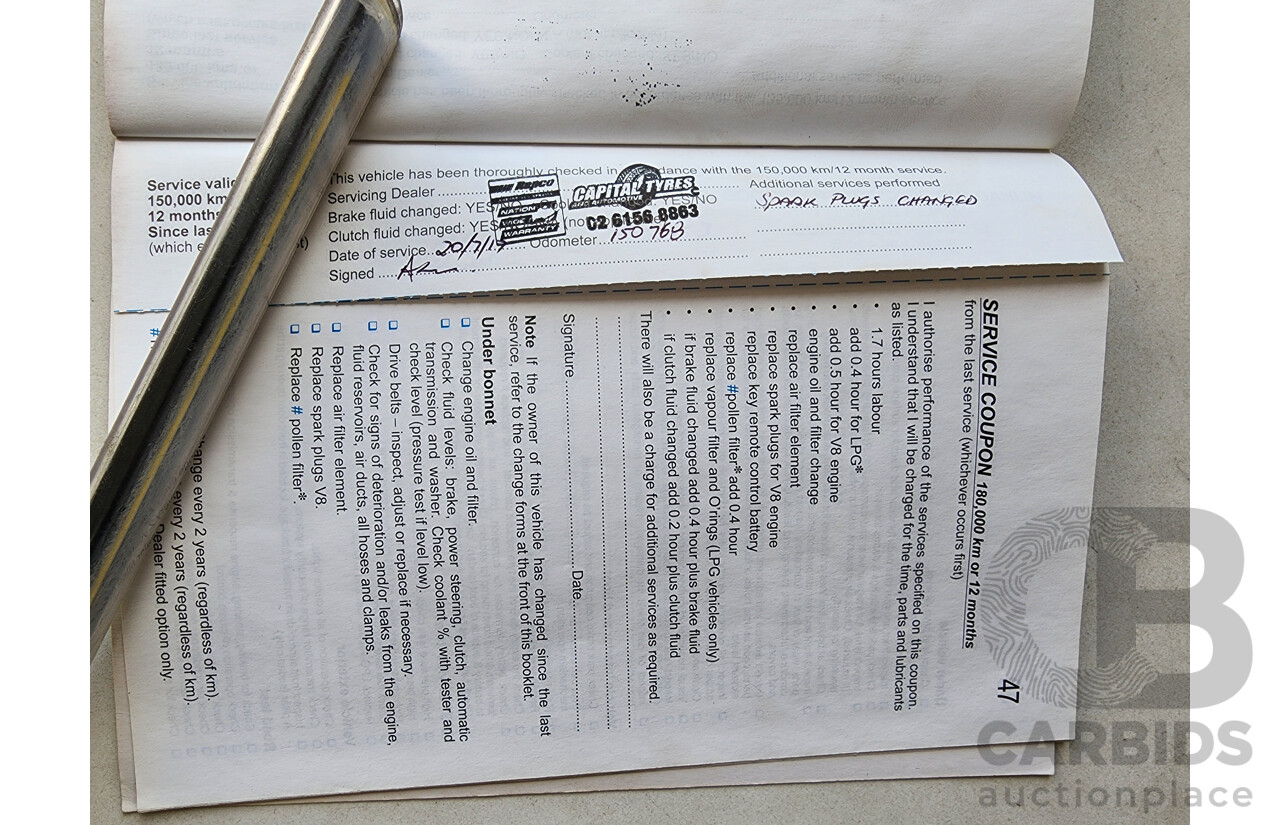 Service valid
150,000 km
12 months
Since las
(which e
st)
This vehicle has been thoroughly checked in dance with the 150,000 km/12 month service.
Servicing Dealer
Additional services performed
Brake fluid changed: YES/NO
YES/NO
SPARK PLUGS CHANGED
Clutch fluid changed: YES
(no
Date of service 20/7/15
Odometer 150 768
Signed
Repco
NATION
WARRANTY
CAPITAL TYRES
AND AUTOMOTIVE
02 6156 8863
47
SERVICE COUPON 180,000 km or 12 months
from the last service (whichever occurs first)
I authorise performance of the services specified on this coupon.
I understand that I will be charged for the time, parts and lubricants
as listed.
• 1.7 hours labour
• add 0.4 hour for LPG*
• add 0.5 hour for V8 engine
• engine oil and filter change
• replace air filter element
• replace spark plugs for V8 engine
• replace key remote control battery
• replace #pollen filter* add 0.4 hour
• replace vapour filter and O'rings (LPG vehicles only)
• if brake fluid changed add 0.4 hour plus brake fluid
• if clutch fluid changed add 0.2 hour plus clutch fluid
There will also be a charge for additional services as required.
Signature Date
Note If the owner of this vehicle has changed since the last
service, refer to the change forms at the front of this booklet.
Under bonnet
❑ Change engine oil and filter.
❑ Check fluid levels: brake, power steering, clutch, automatic
transmission and washer. Check coolant % with tester and
check level (pressure test if level low).
❑ Drive belts – inspect, adjust or replace if necessary.
❑ Check for signs of deterioration and/or leaks from the engine,
fluid reservoirs, air ducts, all hoses and clamps.
❑ Replace air filter element.
❑ Replace spark plugs V8.
❑ Replace # pollen filter*.
hange every 2 years (regardless of km).
every 2 years (regardless of km).
# Dealer fitted option only.
CARBIDS
auctionplace